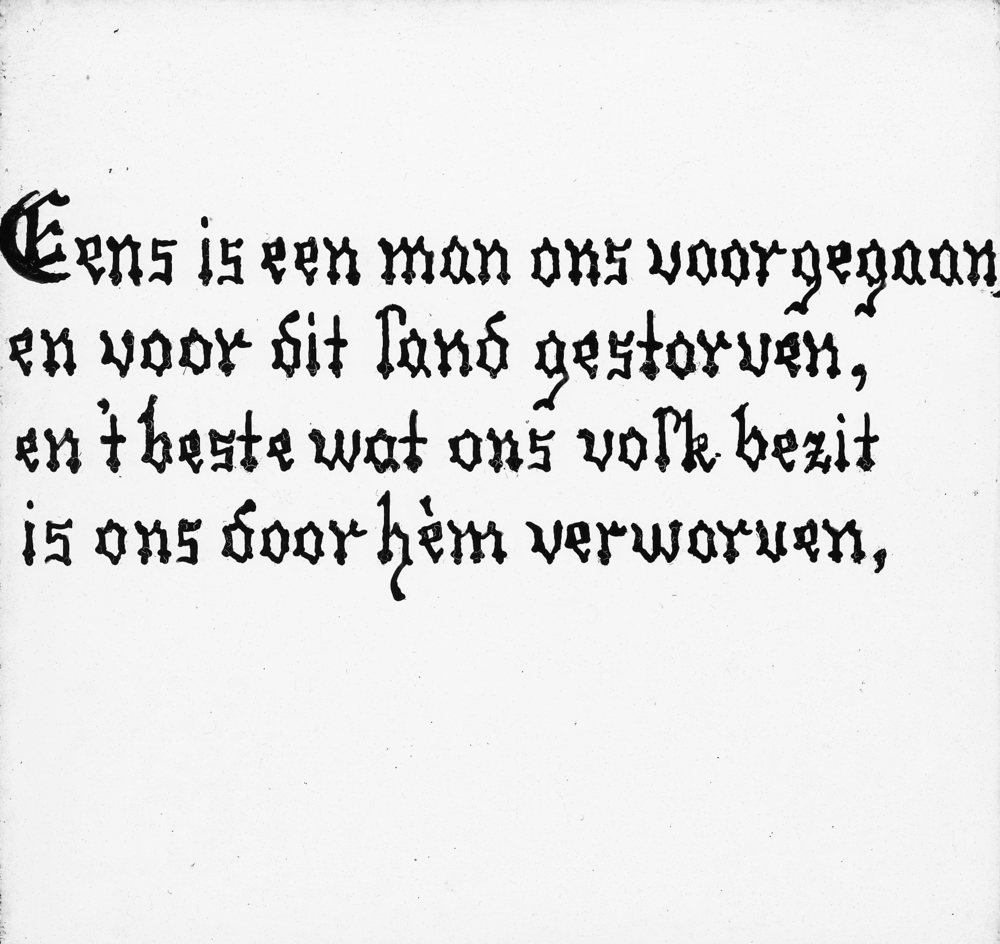 Eens is een man ons voorgegaan,
en voor dit land gestorven,
en 't beste wat ons volk bezit
is ons door hèm verworven,